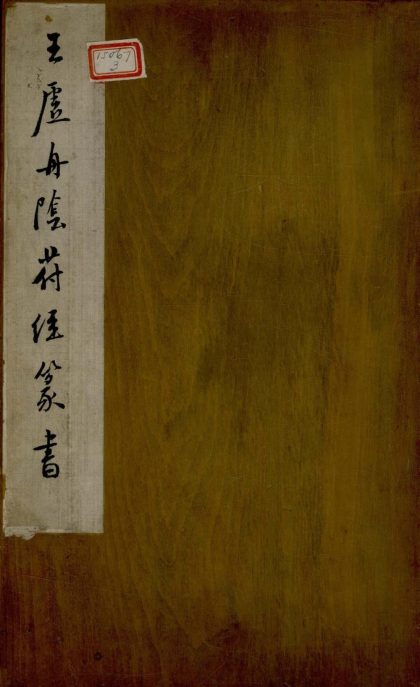 王虛舟陰苻經篆書
15067
3